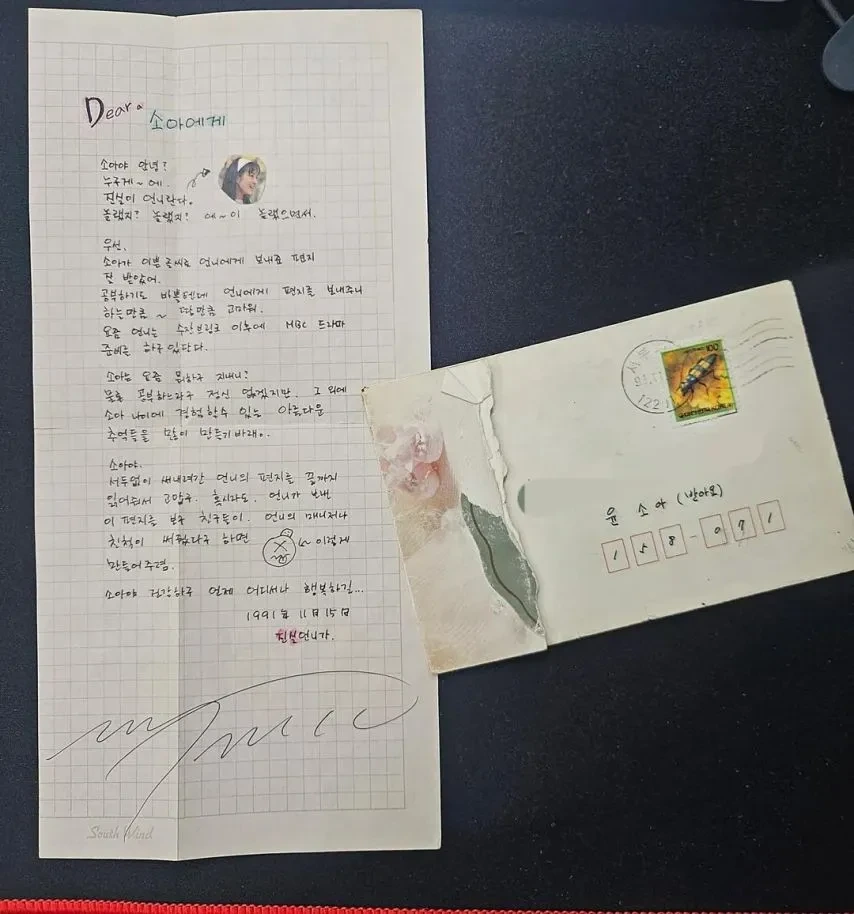 Dear.
소아에게
소아야 안녕?
누구게~에.
진실이 언니란다.
놀랬지? 놀랬지? 에~이 놀랬으면서.
우선,
소아가 이쁜 글씨로 언니에게 보내준 편지
잘 받았어.
공부하기도 바쁠텐데 언니에게 편지를 보내주니
하늘만큼 ~ 땅만큼 고마워.
요즘 언니는 수잔브링크 이후에 MBC 드라마
준비를 하구 있단다.
소아는 요즘 뭐하구 지내니?
물론 공부하느라구 정신 없겠지만. 그 외에
소아 나이에 경험할수 있는 아름다운
추억들을 많이 만들기 바래.
소아야.
서두없이 써내려간 언니의 편지를 끝까지
읽어줘서 고맙구. 혹시라도. 언니가 보낸
이 편지를 보구 친구들이. 언니의 매니저나
친척이 써줬다구 하면 이렇게
만들어주렴.
소아야 건강하구 언제 어디서나 행복하길...
1991年 11日 15日
진실언니가.
South Wind
100
윤 소 아 (받아요)
158-071